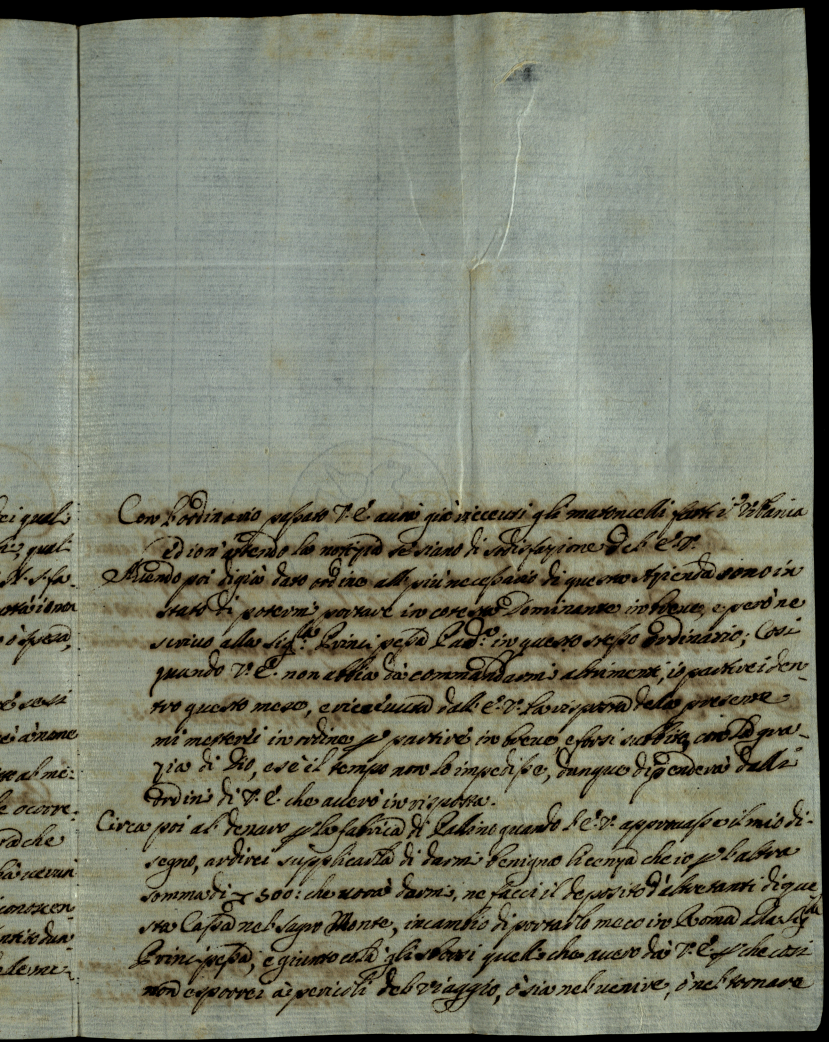 dei qual
qual
N. S. fa-
o spesa,
se si
al me-
le ocorre-
che
conoscen-
dun-
le mi-
Con l'ordinario passato V. E. aurà già riceuuti gli matoncelli fatti in Vrbania
ed io n'attendo la notizia se siano di sodisfazione dell'E. V.
Auendo poi di già dato ordine all più necessario di questa Azienda sono in
stato di potermi portare in cotesta Dominante in breue, e però ne
scriuo alla Sig.ra Principessa Pad.na in questo stesso ordinario; Così
quando V. E. non abbia da commandarmi altrimenti, io partirei den-
tro questo mese, e riceuuta dall'E. V. la risposta dela presente
mi metterei in ordine p partire in breue, e forsi subbito, con la gra-
zia di Dio, e se il tempo non lo impedisse, dunque dipenderà dalli
Ordini di V. E. che auerò in risposta.
Circa poi al denaro p la fabrica di Pallino quando l'E. V. approuasse il mio di-
segno, ardirei supplicarla di darmi benigna licenza che io p l'altra
somma di 500: che uorrà darmi, ne facci il deposito d'altretanti di que
sta Cassa nel Sagro Monte, in cambio di portarlo meco in Roma alla Sig.ra
Principessa, e giunto colà gli sborsi quelli che auerò da V. E. p che così
non esporrei a i pericoli del viaggio, ò sia nel uenire, ò nel tornare